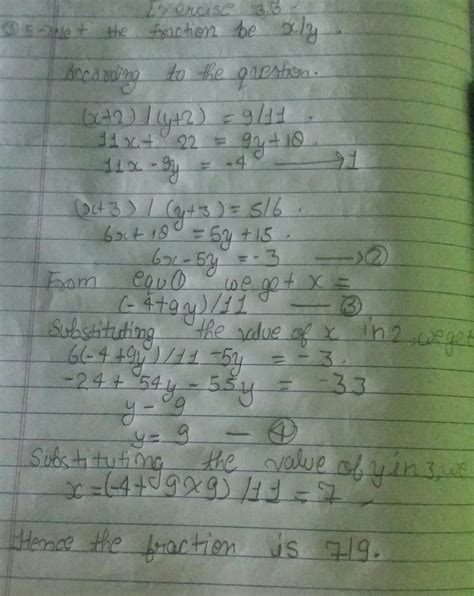 Exercise 3.3
5- Let the fraction be x/y.
According to the question.
(x+2) / (y+2) = 9/11.
11x + 22 = 9y + 18
11x - 9y = -4 → 1
(x+3) / (y+3) = 5/6.
6x + 18 = 5y + 15.
6x - 5y = -3 → ②
From equ ① we get x =
(-4+9y)/11 — ③
Substituting the value of x in 2, we get
6(-4+9y)/11 -5y = -3.
-24 + 54y - 55y = -33
y - 9
y = 9 — ④
Substituting the value of y in 3, we
x = (-4+9×9)/11 = 7
Hence the fraction is 7/9.